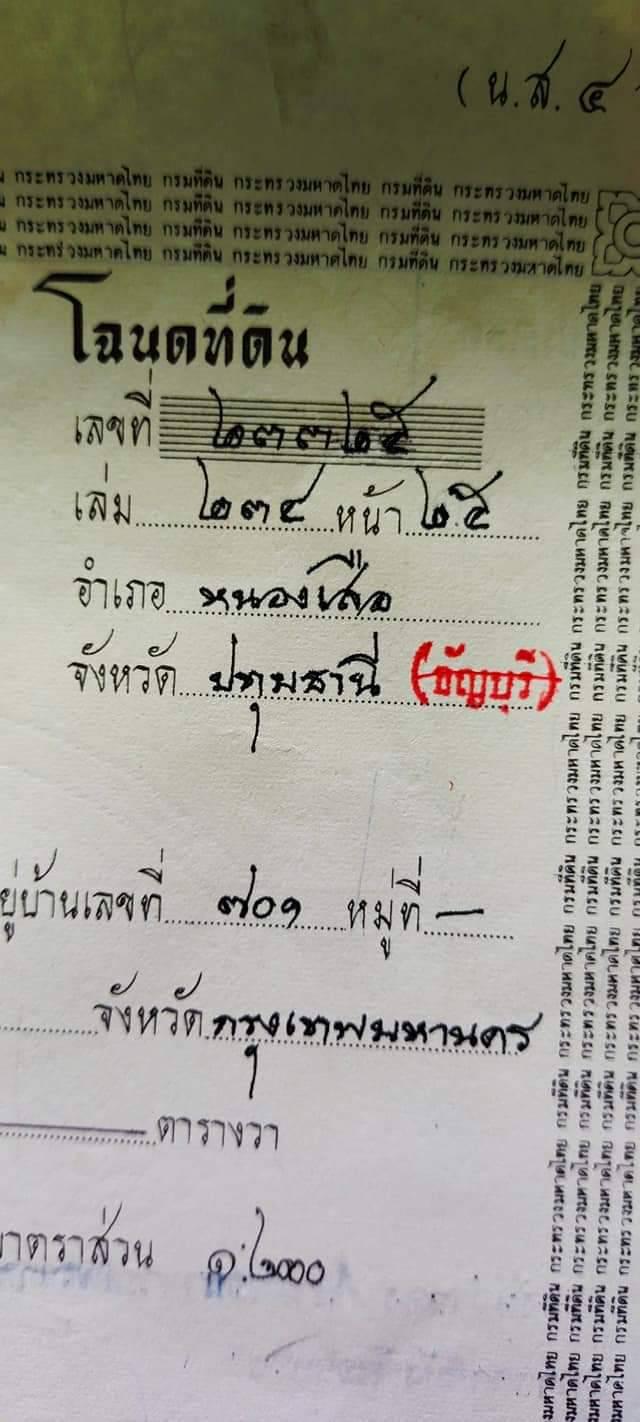 (น.ส. ๔
กระทรวงมหาดไทย กรมที่ดิน กระทรวงมหาดไทย กรมที่ดิน กระทรวงมหาดไทย
กระทรวงมหาดไทย กรมที่ดิน กระทรวงมหาดไทย กรมที่ดิน กระทรวงมหาดไทย
กระทรวงมหาดไทย กรมที่ดิน กระทรวงมหาดไทย กรมที่ดิน กระทรวงมหาดไทย
กระทรวงมหาดไทย กรมที่ดิน กระทรวงมหาดไทย กรมที่ดิน กระทรวงมหาดไทย
โฉนดที่ดิน
เลขที่ ๒๓๓๒๕
เล่ม ๒๓๔ หน้า ๒๕
อำเภอ หนองเสือ
จังหวัด ปทุมธานี (ธัญบุรี)
ยู่บ้านเลขที่ ๗๐๑ หมู่ที่ —
จังหวัด กรุงเทพมหานคร
ตารางวา
มาตราส่วน ๑:๒๐๐๐